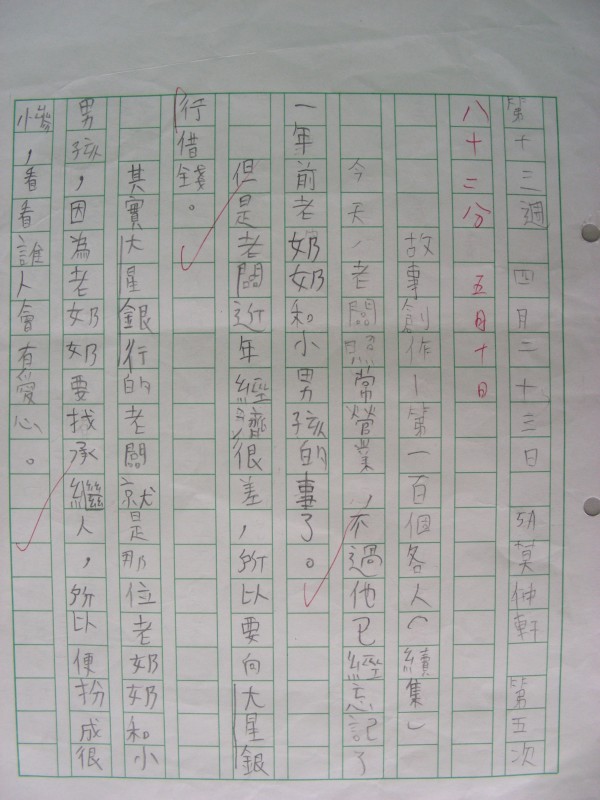 第十三週 四月二十三日 5A莫仲軒 第五次
八十二分 五月十日
故事創作—第一百個客人(續集)
今天,老闆照常營業,不過他已經忘記了
一年前老奶奶和小男孩的事了。
但是老闆近年經濟很差,所以要向大星銀
行借錢。
其實大星銀行的老闆就是那位老奶奶和小
男孩,因為老奶奶要找承繼人,所以便扮成很
,看看誰人會有愛心。